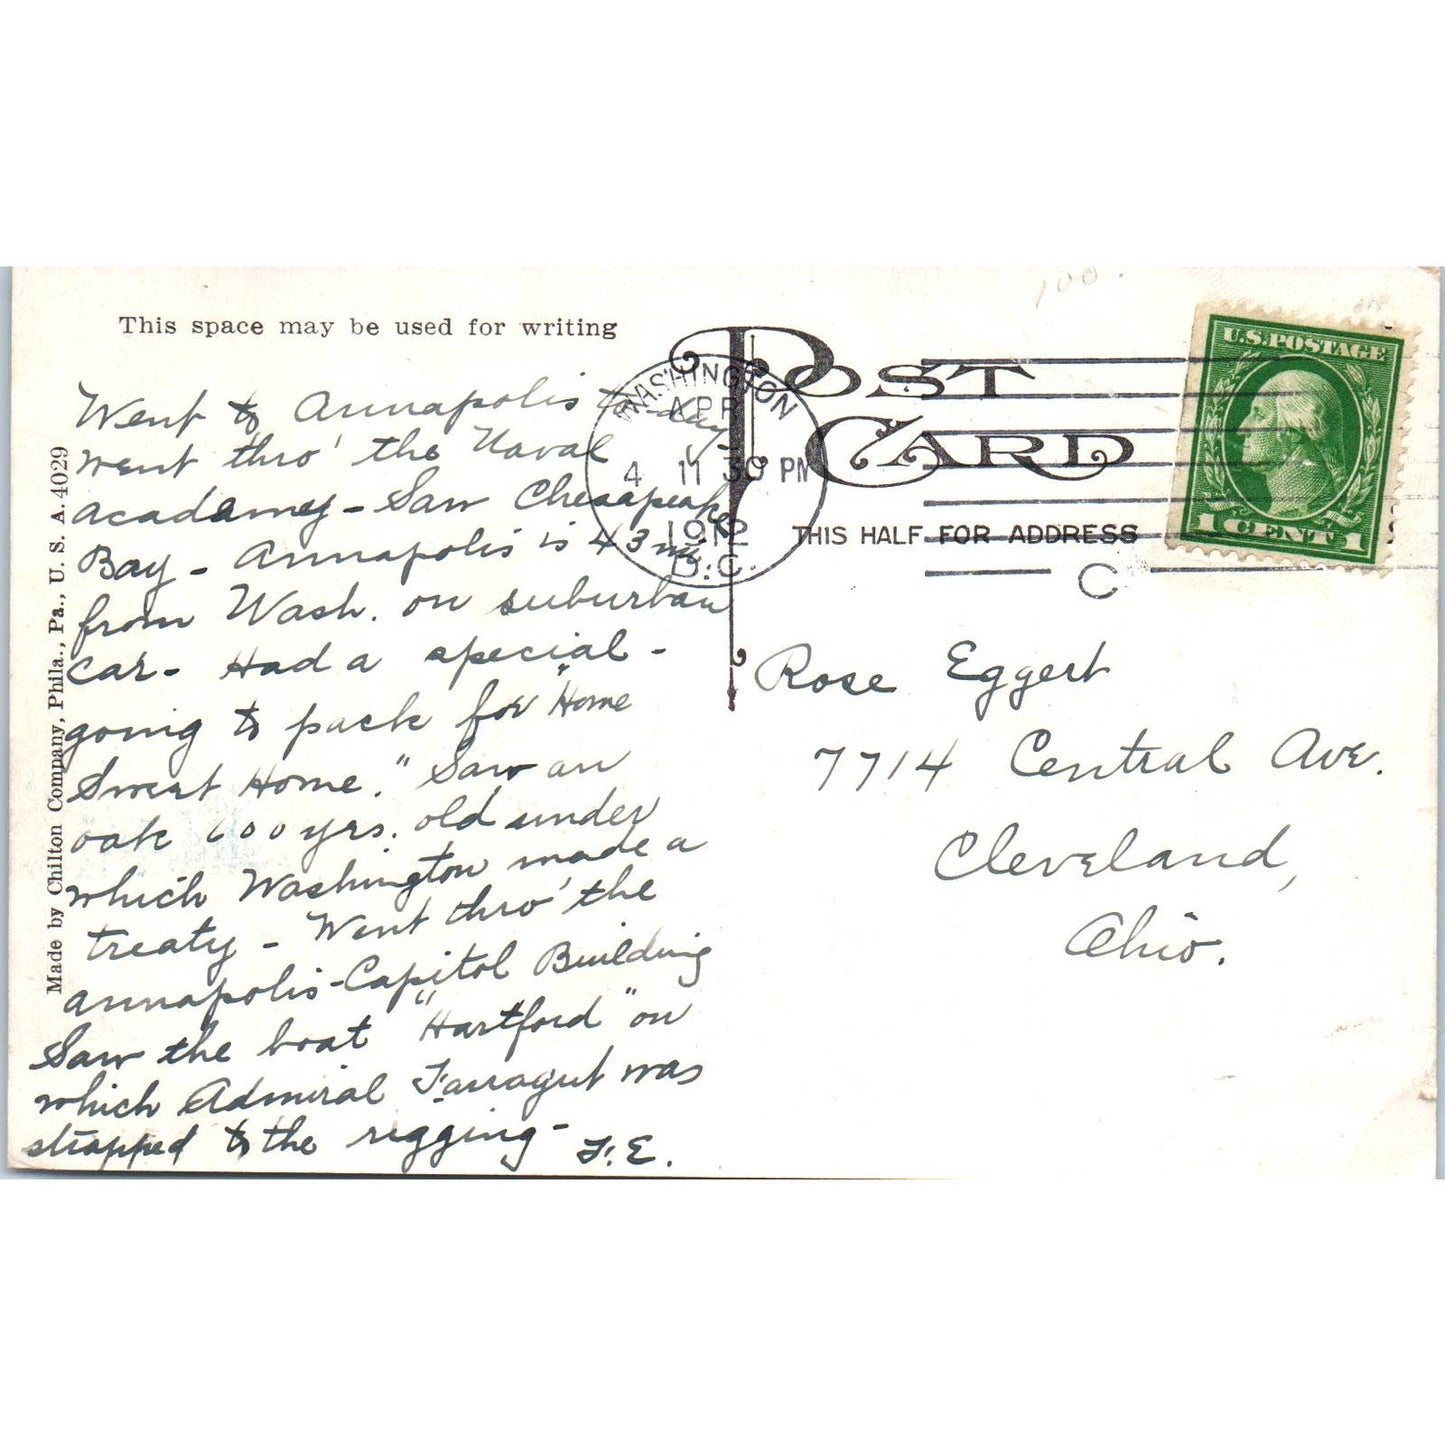 This space may be used for writing
Went to Annapolis to-day.
went thro' the Naval
acadamey - Saw Chesapeake
Bay - Annapolis is 43 mi.
from Wash. on suburban
car - Had a special -
going to pack for "Home
Sweet Home." Saw an
oak 600 yrs. old under
which Washington made a
treaty - Went thro' the
annapolis - Capitol Building
Saw the boat "Hartford" on
which Admiral Farragut was
strapped to the rigging -
F.E.
Made by Chilton Company, Phila., Pa., U. S. A. 4029
POST
CARD
WASHINGTON
APR
4 11 30 PM
1912
D.C.
THIS HALF FOR ADDRESS
C
100.
U.S. POSTAGE
1 CENT 1
Rose Eggert
7714 Central Ave.
Cleveland,
Ohio.